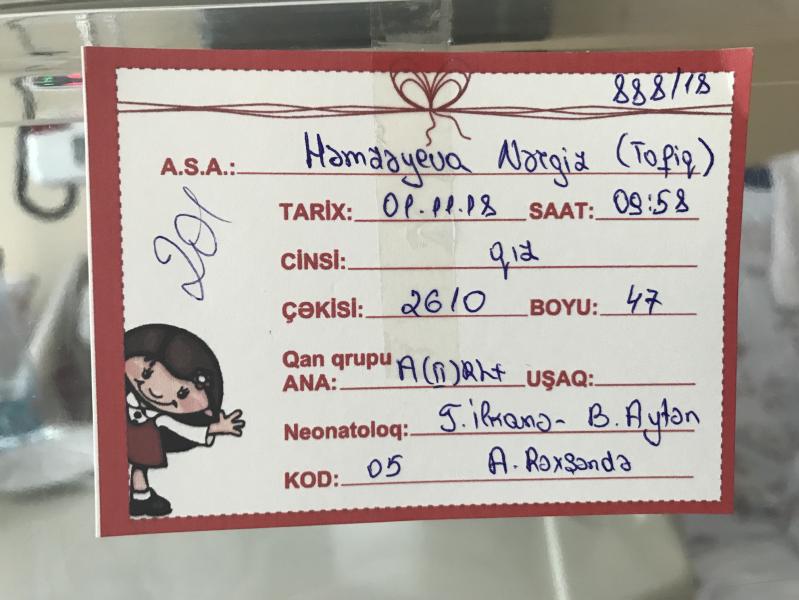 888/18
A.S.A.: Həmzəyeva Nərgiz (Tofiq)
201
TARİX: 01.11.18 SAAT: 09:58
CİNSİ: qız
ÇƏKİSİ: 2610 BOYU: 47
Qan qrupu
ANA: A(II)Rh+ UŞAQ:
Neonatoloq: T. İlhamə - B. Aytən
KOD: 05 A. Rəxşəndə